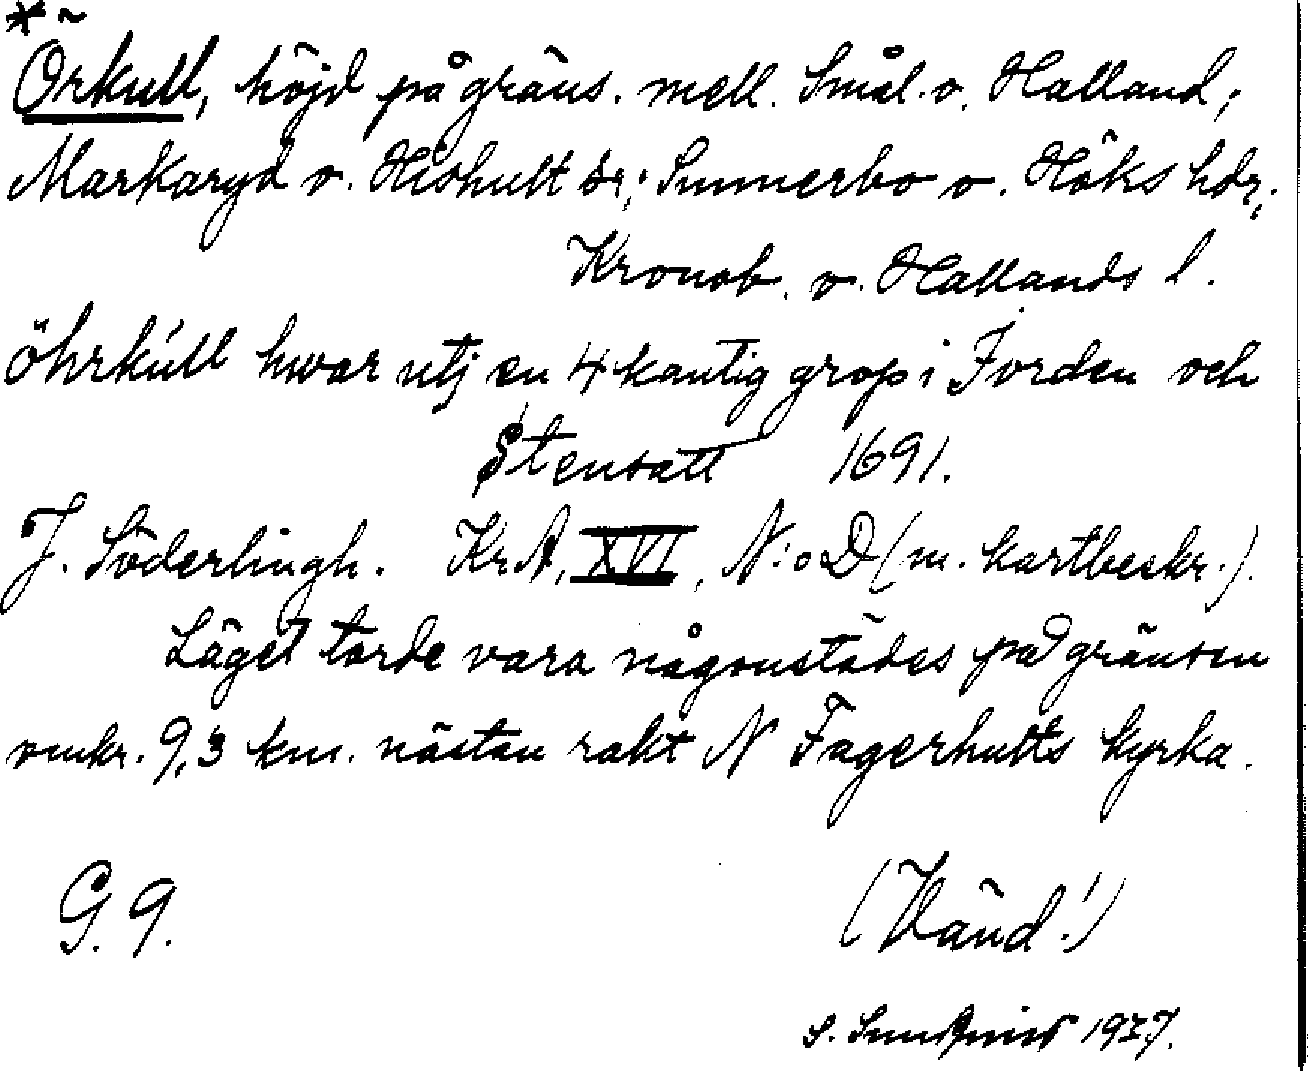 *Örkull, höjd på gräns. mell. Smål. o. Halland;
Markaryd o. Hishult sr; Sunnerbo o. Höks hdr;
Kronob. o. Hallands l.
öhrkúll hwar utj en 4 kantig grop i Jorden och
Stensatt 1691.
J. Söderlingh. KrA, XVI, N:o D (m. kartbeskr.).
Läget torde vara någonstädes på gränsen
omkr. 9,3 km. nästan rakt N Fagerhults kyrka.
G. 9. (Vänd!)
S. 1937.